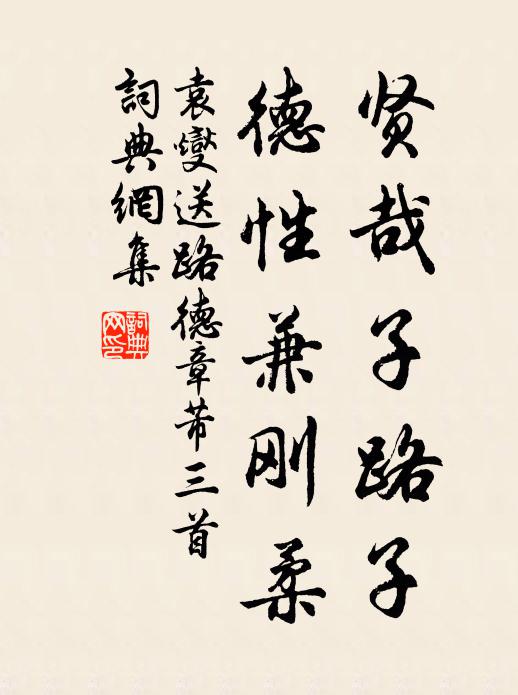 贤哉子路子
德性兼刚柔
袁燮送路德章芾三首
词典网集
词典网印